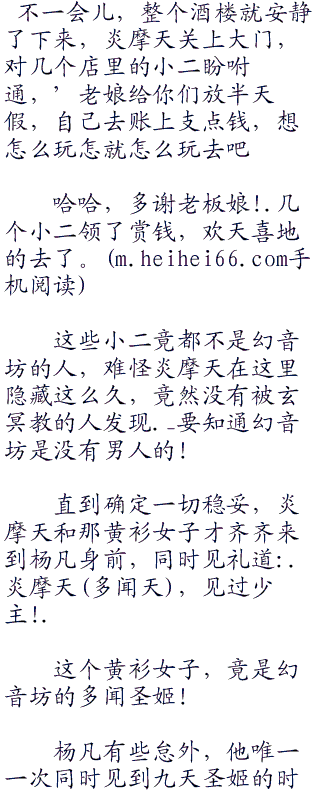 不一会儿，整个酒楼就安静
了下来，炎摩天关上大门，
对几个店里的小二盼咐
通，’老娘给你们放半天
假，自己去账上支点钱，想
怎么玩怎就怎么玩去吧
哈哈，多谢老板娘!.几
个小二领了赏钱，欢天喜地
的去了。(m.heihei66.com手
机阅读)
这些小二竟都不是幻音
坊的人，难怪炎摩天在这里
隐藏这么久，竟然没有被玄
冥教的人发现._要知通幻音
坊是没有男人的!
直到确定一切稳妥，炎
摩天和那黄衫女子才齐齐来
到杨凡身前，同时见礼道:.
炎摩天(多闻天)，见过少
主!.
这个黄衫女子，竟是幻
音坊的多闻圣姬!
杨凡有些怠外，他唯一
一次同时见到九天圣姬的时